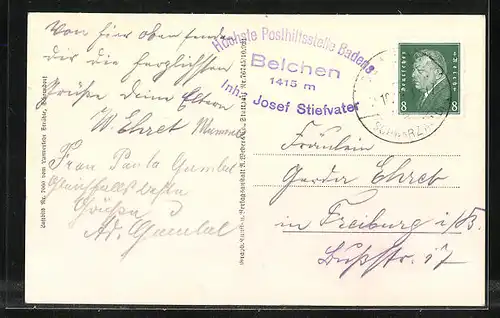 Von hier oben senden
dir die herzlichsten
Grüße deine Eltern
W. Ehret
Frau Paula Gumbel
Gleichfalls beste
Grüße
Ad. Gumbel
Höchste Posthilfsstelle Badens
Belchen
1415 m
Inh. Josef Stiefvater
Deutsches Reich
8 8
SCHWARZW
Fräulein
Gerda Ehret
in Freiburg i/B.